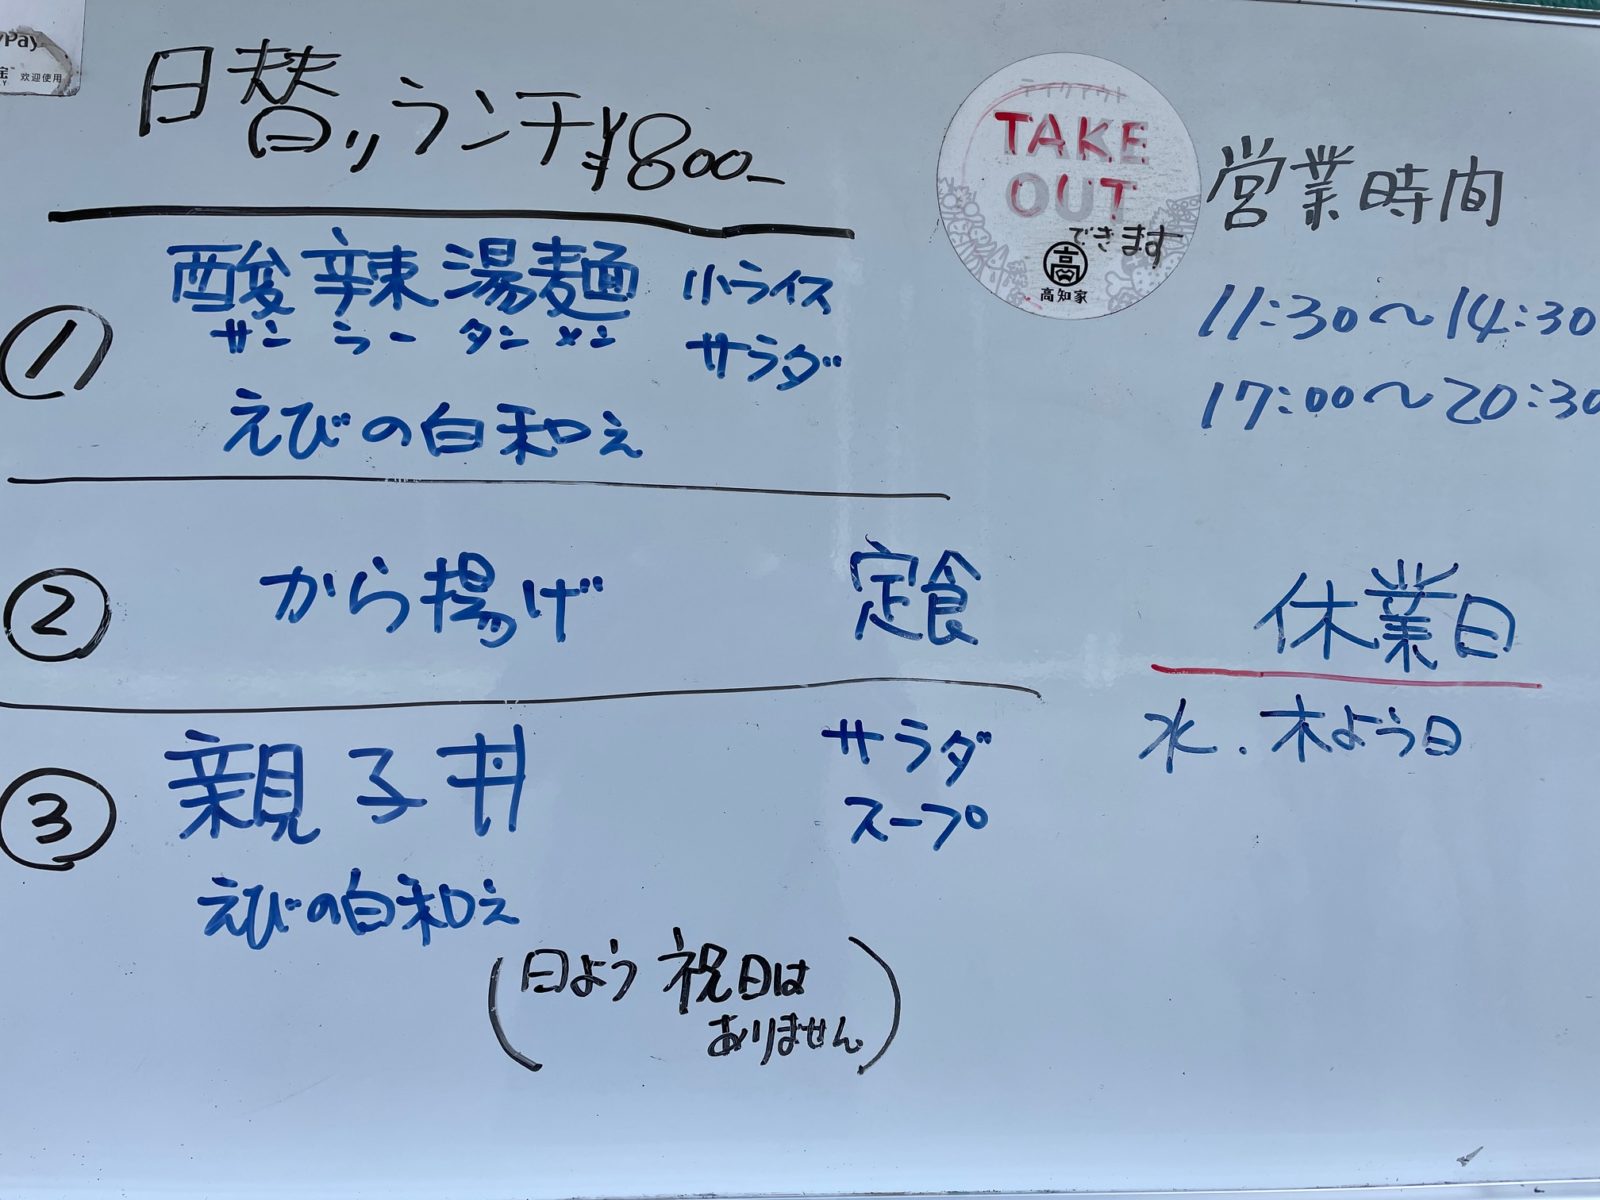 Pay
欢迎使用
日替りランチ¥800-
① 酸辣湯麺 小ライス
サンラータンメン サラダ
えびの白和え
② から揚げ 定食
③ 親子丼 サラダ
スープ
えびの白和え
(日よう 祝日は
ありません)
テイクアウト
TAKE
OUT
できます
高
高知家
営業時間
11:30〜14:30
17:00〜20:30
休業日
水.木よう日